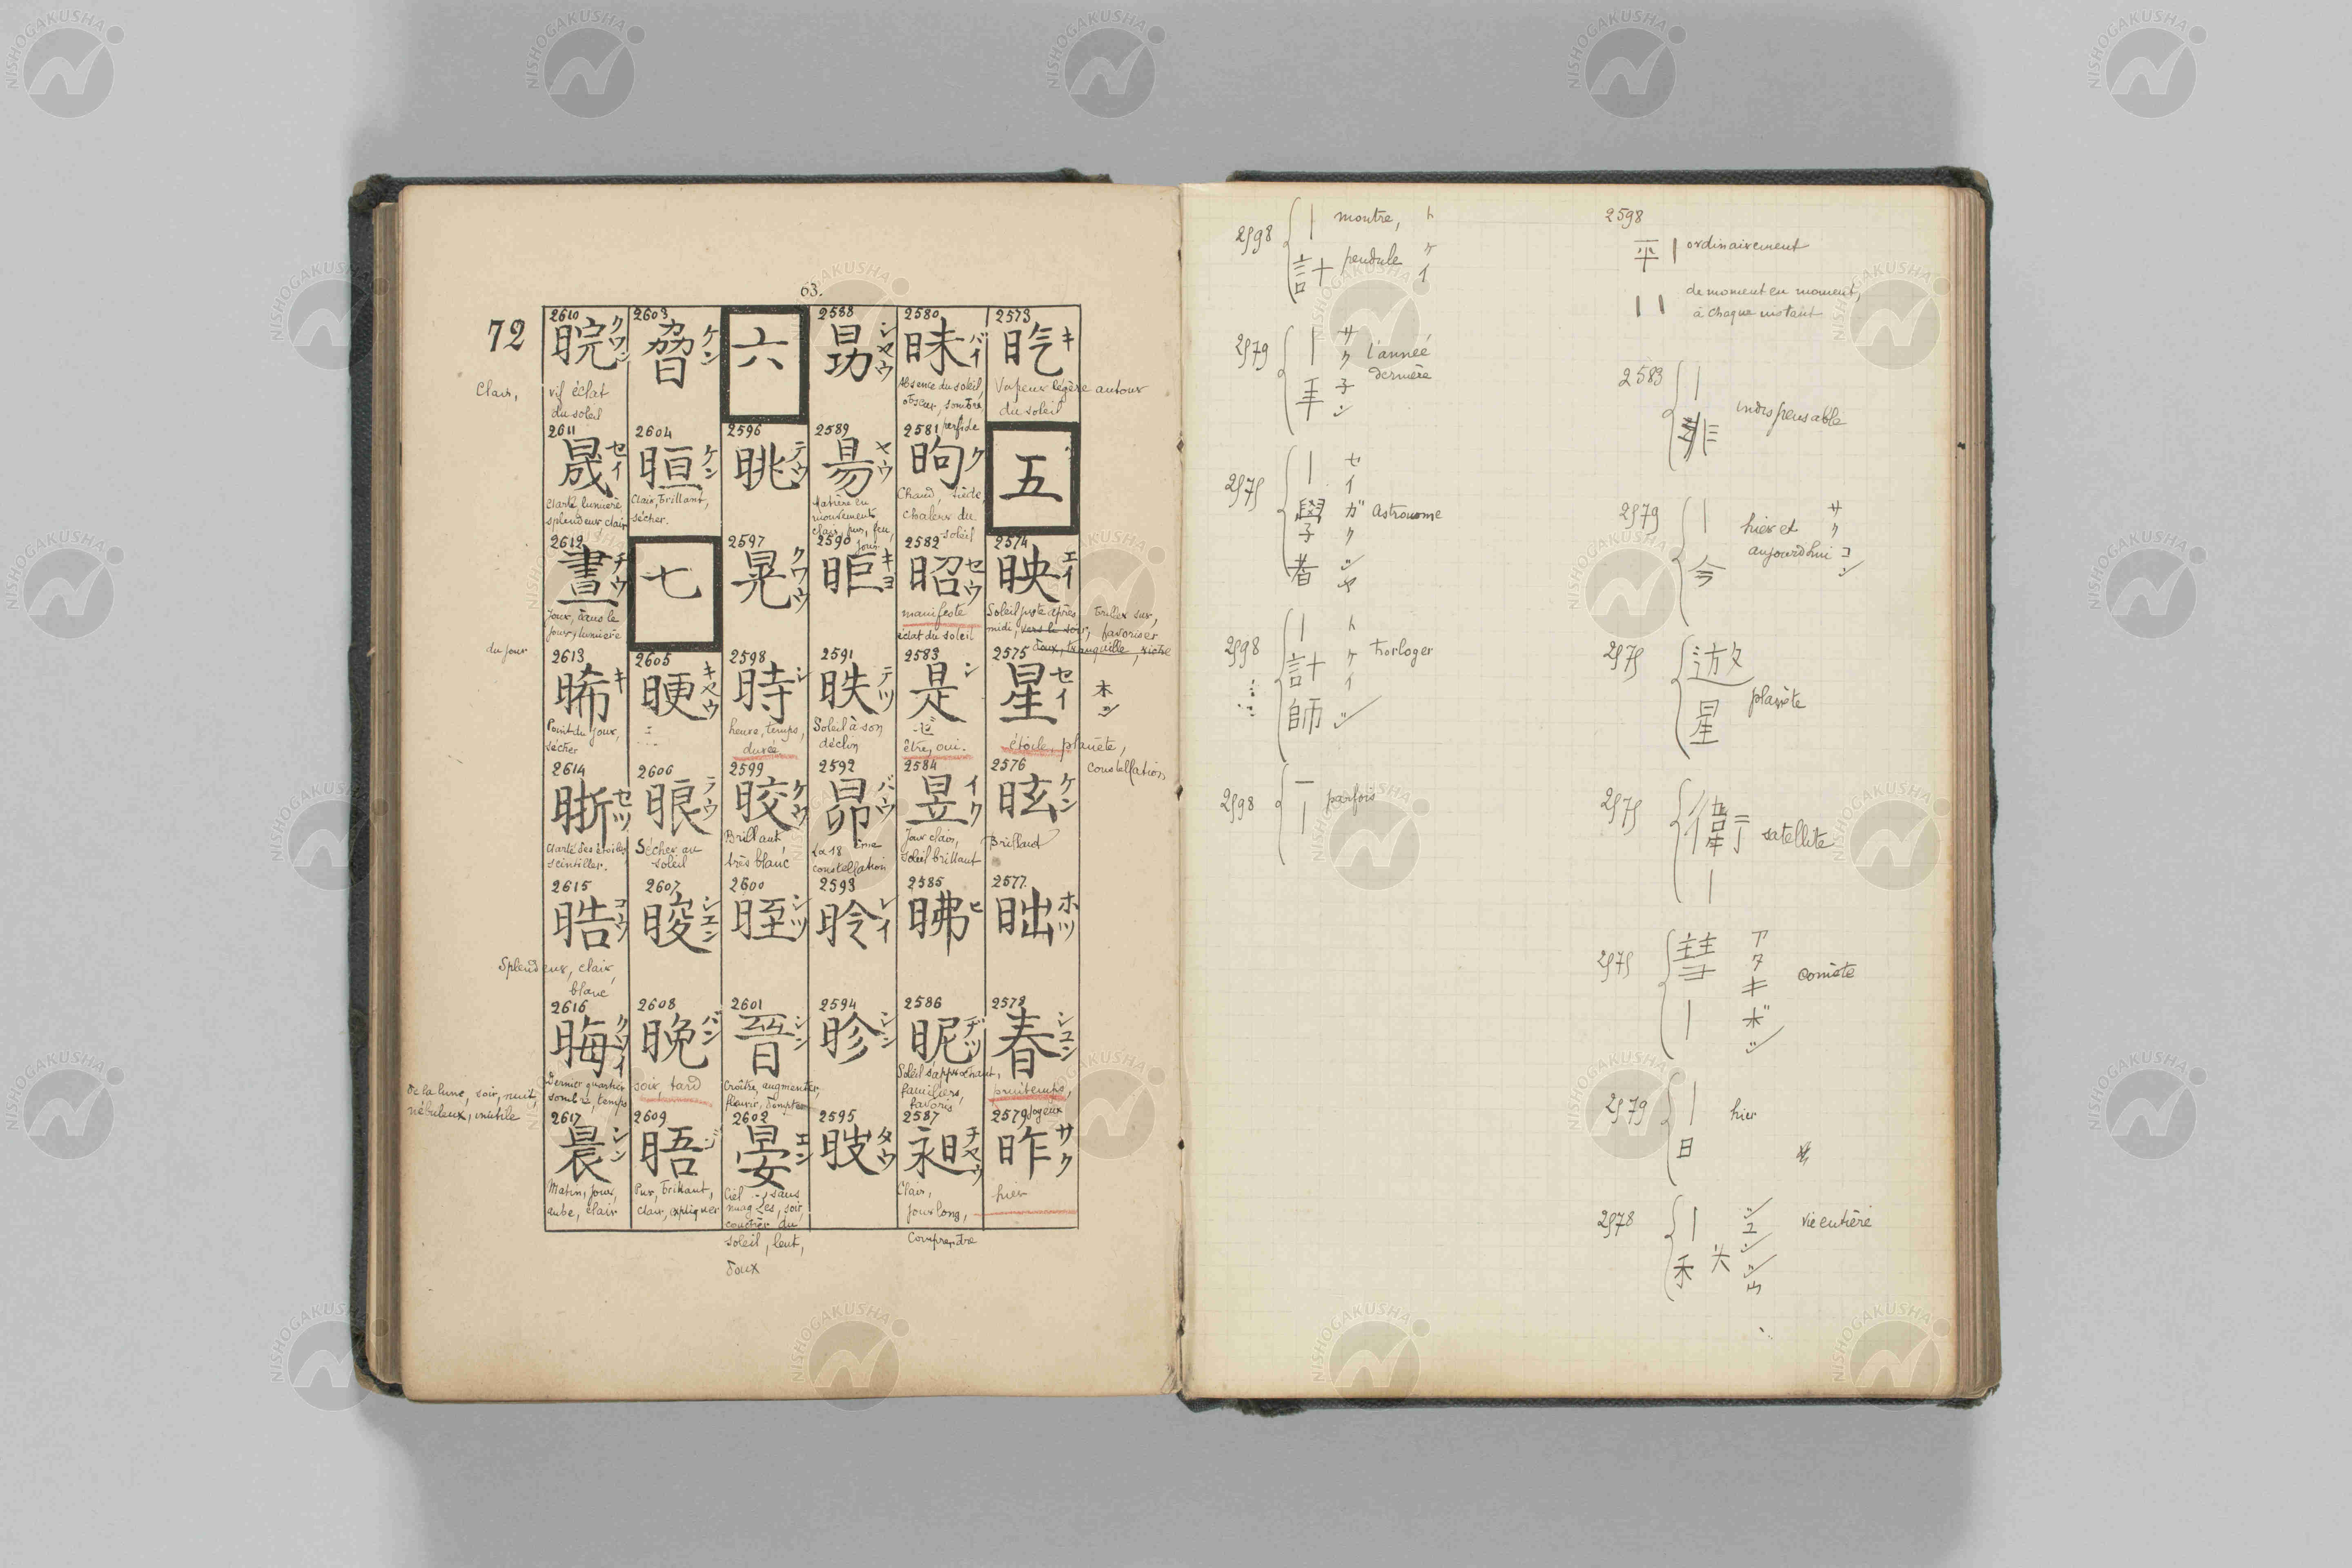 63.
72
2573
昑 キ
Vapeur légère autour
du soleil
五
2574
映 エイ
Soleil juste après
midi, vers le soir,
briller sur,
favoriser
doux, tranquille, riche
2575
星 セイ
ホシ
étoile, planète,
constellation
2576
昡 ケン
Brillant
2577
昢 ホツ
2578
春 シユン
printemps,
joyeux
2579
昨 サク
hier
2580
昧 バイ
Absence du soleil,
obscur, sombre,
perfide
2581
昫 ク
Chaud, tiède,
chaleur du
soleil
2582
昭 セウ
manifeste
éclat du soleil
2583
是 シ
ゼ
être, oui.
2584
昱 イク
Jour clair,
soleil brillant
2585
昲 ヒ
2586
昵 ヂツ
Soleil s'approchant,
familiers,
favoris
2587
昶 チヤウ
Clair,
jour long,
Comprendre
2588
シヤウ
2589
昜 ヤウ
Matière en
mouvement,
clair, pur, feu,
jour
2590
昛 キヨ
2591
昳 テツ
Soleil à son
déclin
2592
昴 バウ
La 18 ème
constellation
2593
昤 レイ
2594
昣 シン
2595
タウ
六
2596
晀 テウ
2597
晃 クワウ
2598
時 シ
heure, temps,
durée
2599
晈 ケウ
Brillant,
très blanc
2600
晊 シツ
2601
晉 シン
Croître, augmenter,
fleurir, dompter
2602
晏 エン
Ciel sans
nuages, soir,
coucher du
soleil, lent,
doux
2603
ケン
2604
晅 ケン
Clair, brillant,
sécher.
七
2605
㬲 キヤウ
2606
㫰 ラウ
Sécher au
soleil
2607
晙 シユン
2608
晚 バン
soir, tard
2609
晤 ゴ
Pur, brillant,
clair, expliquer
2610
晥 クワン
Clair, vif éclat
du soleil
2611
晟 セイ
Clarté, lumière,
splendeur, clair
2612
晝 チウ
Jour, dans le
jour, lumière
du jour
2613
晞 キ
Point du jour,
sécher
2614
晣 セツ
Clarté des étoiles,
scintiller.
2615
晧 コウ
Splendeur, clair,
blanc
2616
晦 クワイ
Dernier quartier
de la lune, soir, nuit,
sombre, temps
nébuleux, inutile
2617
晨 シン
Matin, jour,
aube, clair
2598
｜ montre,
計 pendule
トケイ
2579
｜年
サクネン
l'année
dernière
2575
｜學者
セイガクシヤ
Astronome
2598
｜計師
トケイシ
horloger
2598
一｜
parfois
2598
平｜ ordinairement
｜｜ de moment en moment,
à chaque instant
2583
｜非
indispensable
2579
｜今
hier et
aujourd'hui
サクコン
2575
遊星
planète
2575
衛｜
satellite
2575
彗｜
comète
2579
｜日
hier
2578
｜秋
vie entière